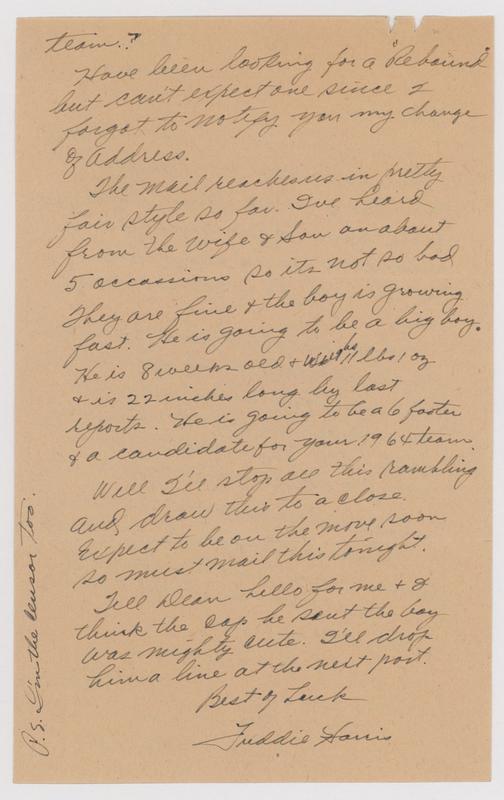 team.?
Have been looking for a "Rebound"
but can't expect one since I
forgot to notify you my change
of address.
The mail reaches us in pretty
fair style so far. I've heard
from the wife & Son on about
5 occassions so its not so bad
They are fine & the boy is growing
fast. He is going to be a big boy.
He is 8 weeks old & weighs 11 lbs 1 oz
& is 22 inches long by last
reports. He is going to be a 6 footer
& a candidate for your 1964 team.
Well I'll stop all this rambling
and draw this to a close.
Expect to be on the move soon
so must mail this tonight.
Tell Dean hello for me & I
think the cap he sent the boy
was mighty cute. I'll drop
him a line at the next port.
Best of Luck
Freddie Harris
P.S. I'm the censor too.